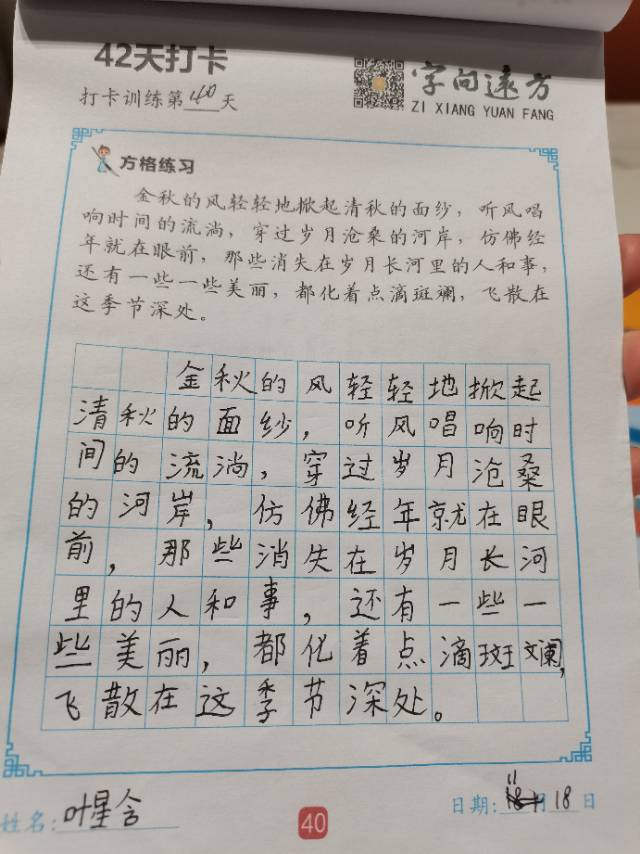 42天打卡
打卡训练第40天
字向遠方
ZI XIANG YUAN FANG
方格练习
金秋的风轻轻地掀起清秋的面纱，听风唱
响时间的流淌，穿过岁月沧桑的河岸，仿佛经
年就在眼前，那些消失在岁月长河里的人和事，
还有一些一些美丽，都化着点滴斑斓，飞散在
这季节深处。
金秋的风轻轻地掀起
清秋的面纱，听风唱响时
间的流淌，穿过岁月沧桑
的河岸，仿佛经年就在眼
前，那些消失在岁月长河
里的人和事，还有一些一
些美丽，都化着点滴斑斓，
飞散在这季节深处。
姓名：叶星含
40
日期：11月18日